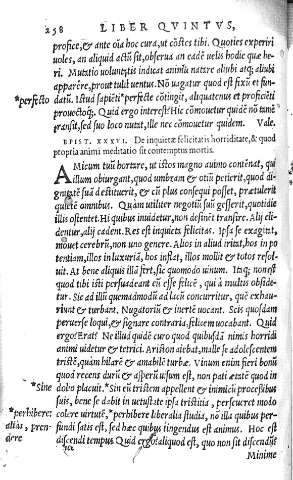 258 LIBER QVINTVS,
profice, & ante oia hoc cura, ut cõstes tibi. Quoties experiri
uoles, an aliquid actũ sit, obserua an eadẽ uelis hodie quæ he-
ri. Mutatio uoluntatis indicat animũ natare alibi atq; alibi
apparere, prout tulit uentus. Nõ uagatur quod est fixũ et fun-
*perfecto datũ. Istud sapiẽti *perfecte cõtingit, aliquatenus et proficiẽti
prouectoq;. Quid ergo interest? Hic cõmouetur quidẽ nõ tamẽ
transit, sed suo loco nutat, ille nec cõmouetur quidem. Vale.
EPIST. XXXVI. De inquietæ felicitatis horriditate, & quod
propria animi meditatio sit contemptus mortis.
AMicum tuũ hortare, ut istos magno animo contẽnat, qui
illum obiurgant, quod umbram & otiũ petierit, quod di-
gnitatẽ suã destituerit, & cũ plus consequi posset, prætulerit
quietẽ omnibus. Quàm utiliter negotiũ suũ gesserit, quotidie
illis ostentet. Hi quibus inuidetur, non desinẽt transire. Alij eli-
dentur, alij cadent. Res est inquieta felicitas. Ipsa se exagitat,
mouet cerebrũ, non uno genere. Alios in aliud irritat, hos in po
tentiam, illos in luxuriã, hos inflat, illos mollit & totos resol-
uit. At bene aliquis illã fert, sic quomodo uinum. Itaq; non est
quod tibi isti persuadeant eũ esse felicẽ, qui à multis obside-
tur. Sic ad illũ quemadmodũ ad lacũ concurritur, quẽ exhau-
riunt & turbant. Nugatoriũ & inertẽ uocant. Scis quosdam
peruerse loqui, & signare contraria. felicem uocabant. Quid
ergo? Erat? Ne illud quidẽ curo quod quibusdã nimis horridi
animi uidetur & tetrici. Ariston aiebat, malle se adolescentem
tristẽ, quàm hilarẽ & amabilẽ turbæ. Vinum enim fieri bonũ
quod recens durũ & asperũ uisum est, non pati ætatẽ quod in
*Sine dolio placuit. *Sin eũ tristem appellent & inimicũ processibus
suis, bene se dabit in uetustate ipsa tristitia, perseueret modo
*perhibere colere uirtutẽ, *perhibere liberalia studia, nõ illa quibus per-
alias, pren- fundi satis est, sed hæc quibus tingendus est animus. Hoc est
dere discendi tempus Quid ergo? aliquod est, quo non sit discendũs
Minime